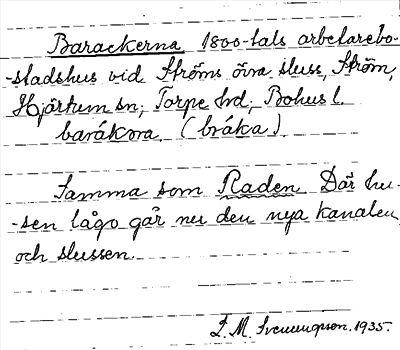 Barackerna 1800-tals arbetarebo-
-stadshus vid Ströms övra sluss, Ström,
Hjärtum sn; Torpe hd; Bohus l.
baråkora. (bråka).
Samma som Raden. Där hu-
-sen lågo går nu den nya kanalen
och slussen.
L. M. Svenungsson. 1935.